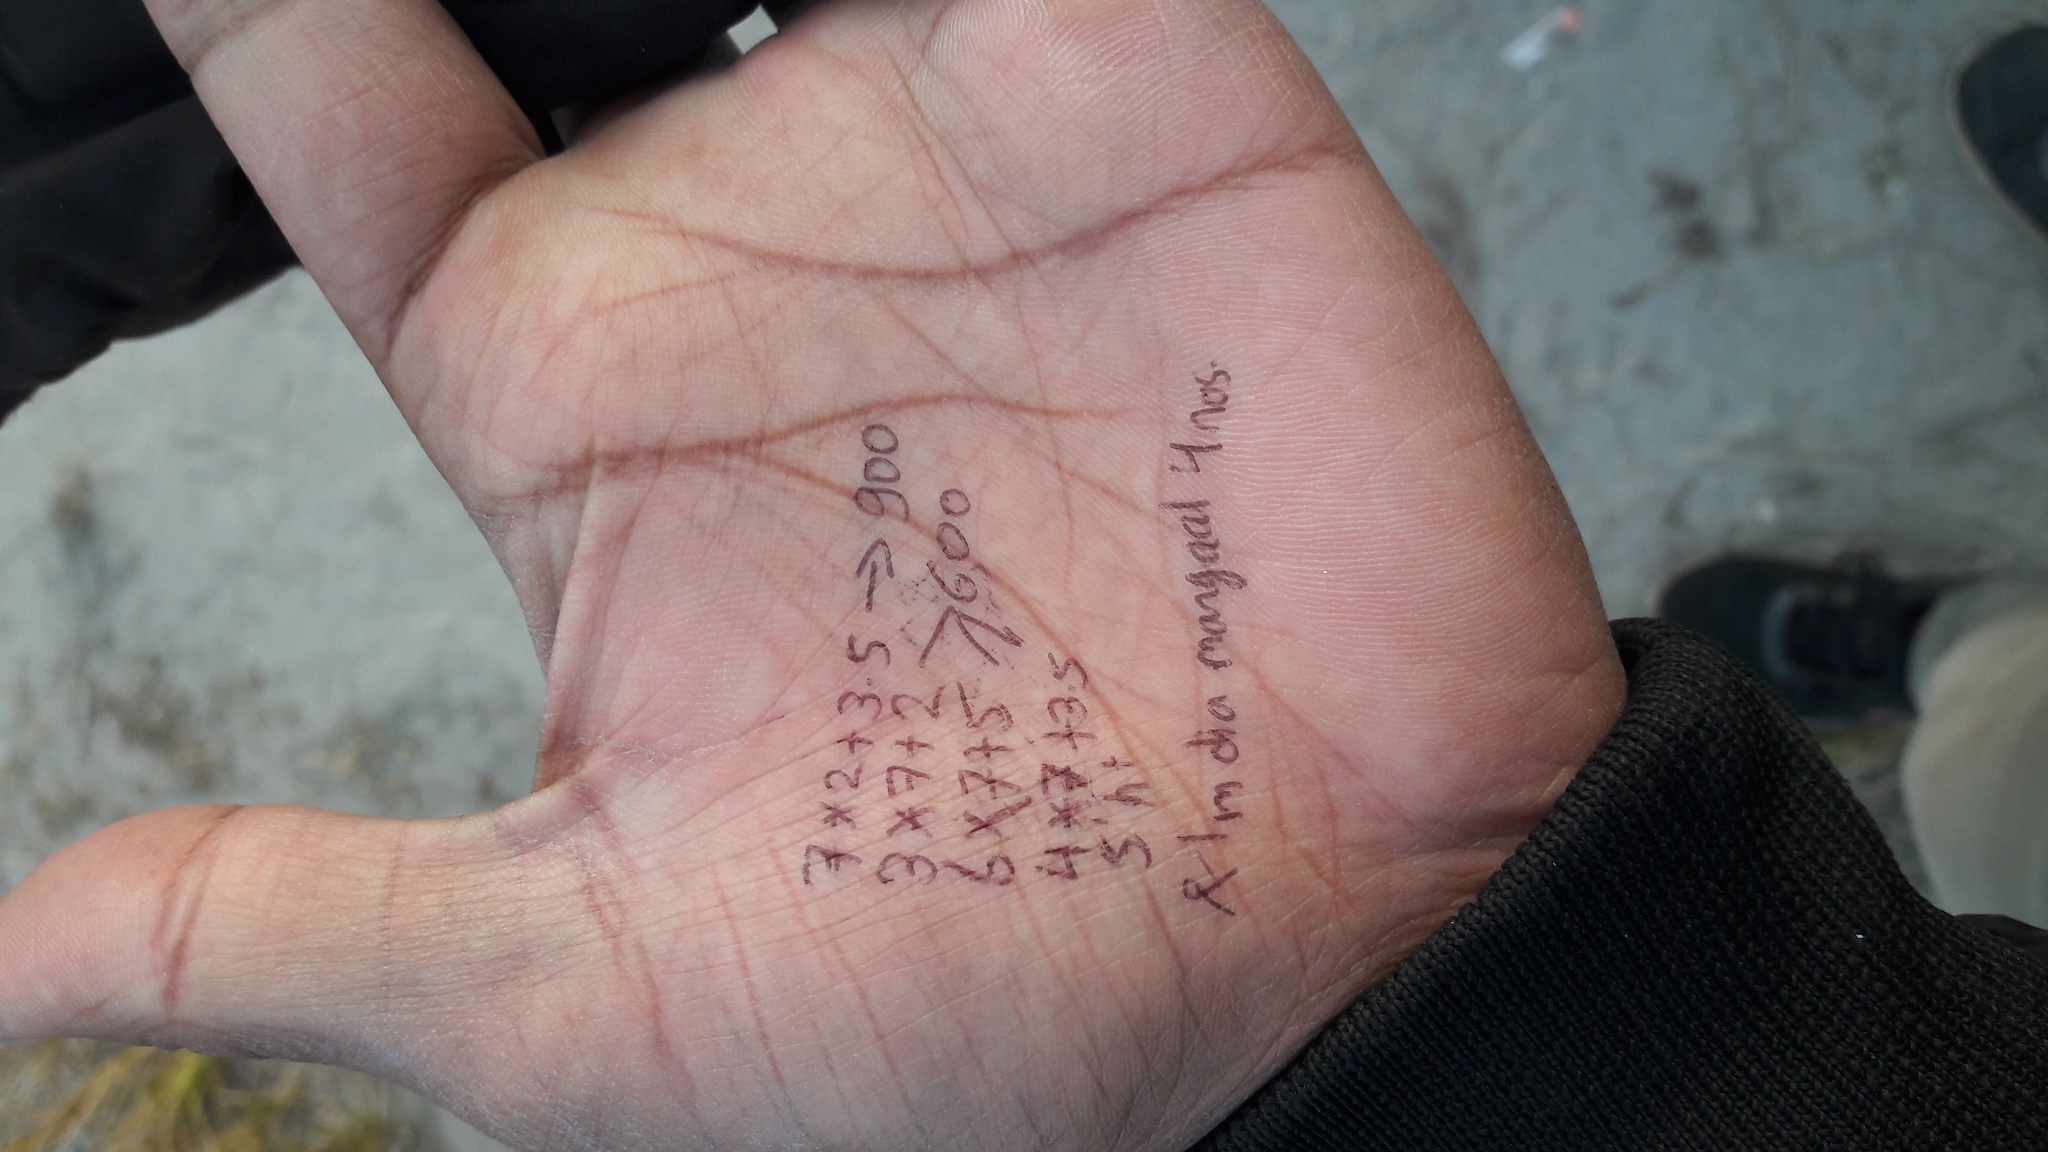 7×2+3.5 → 900
3×7+2
6×7+5 > 600
4×7+3.5
5' ht
1m dia mangaal 4 nos.